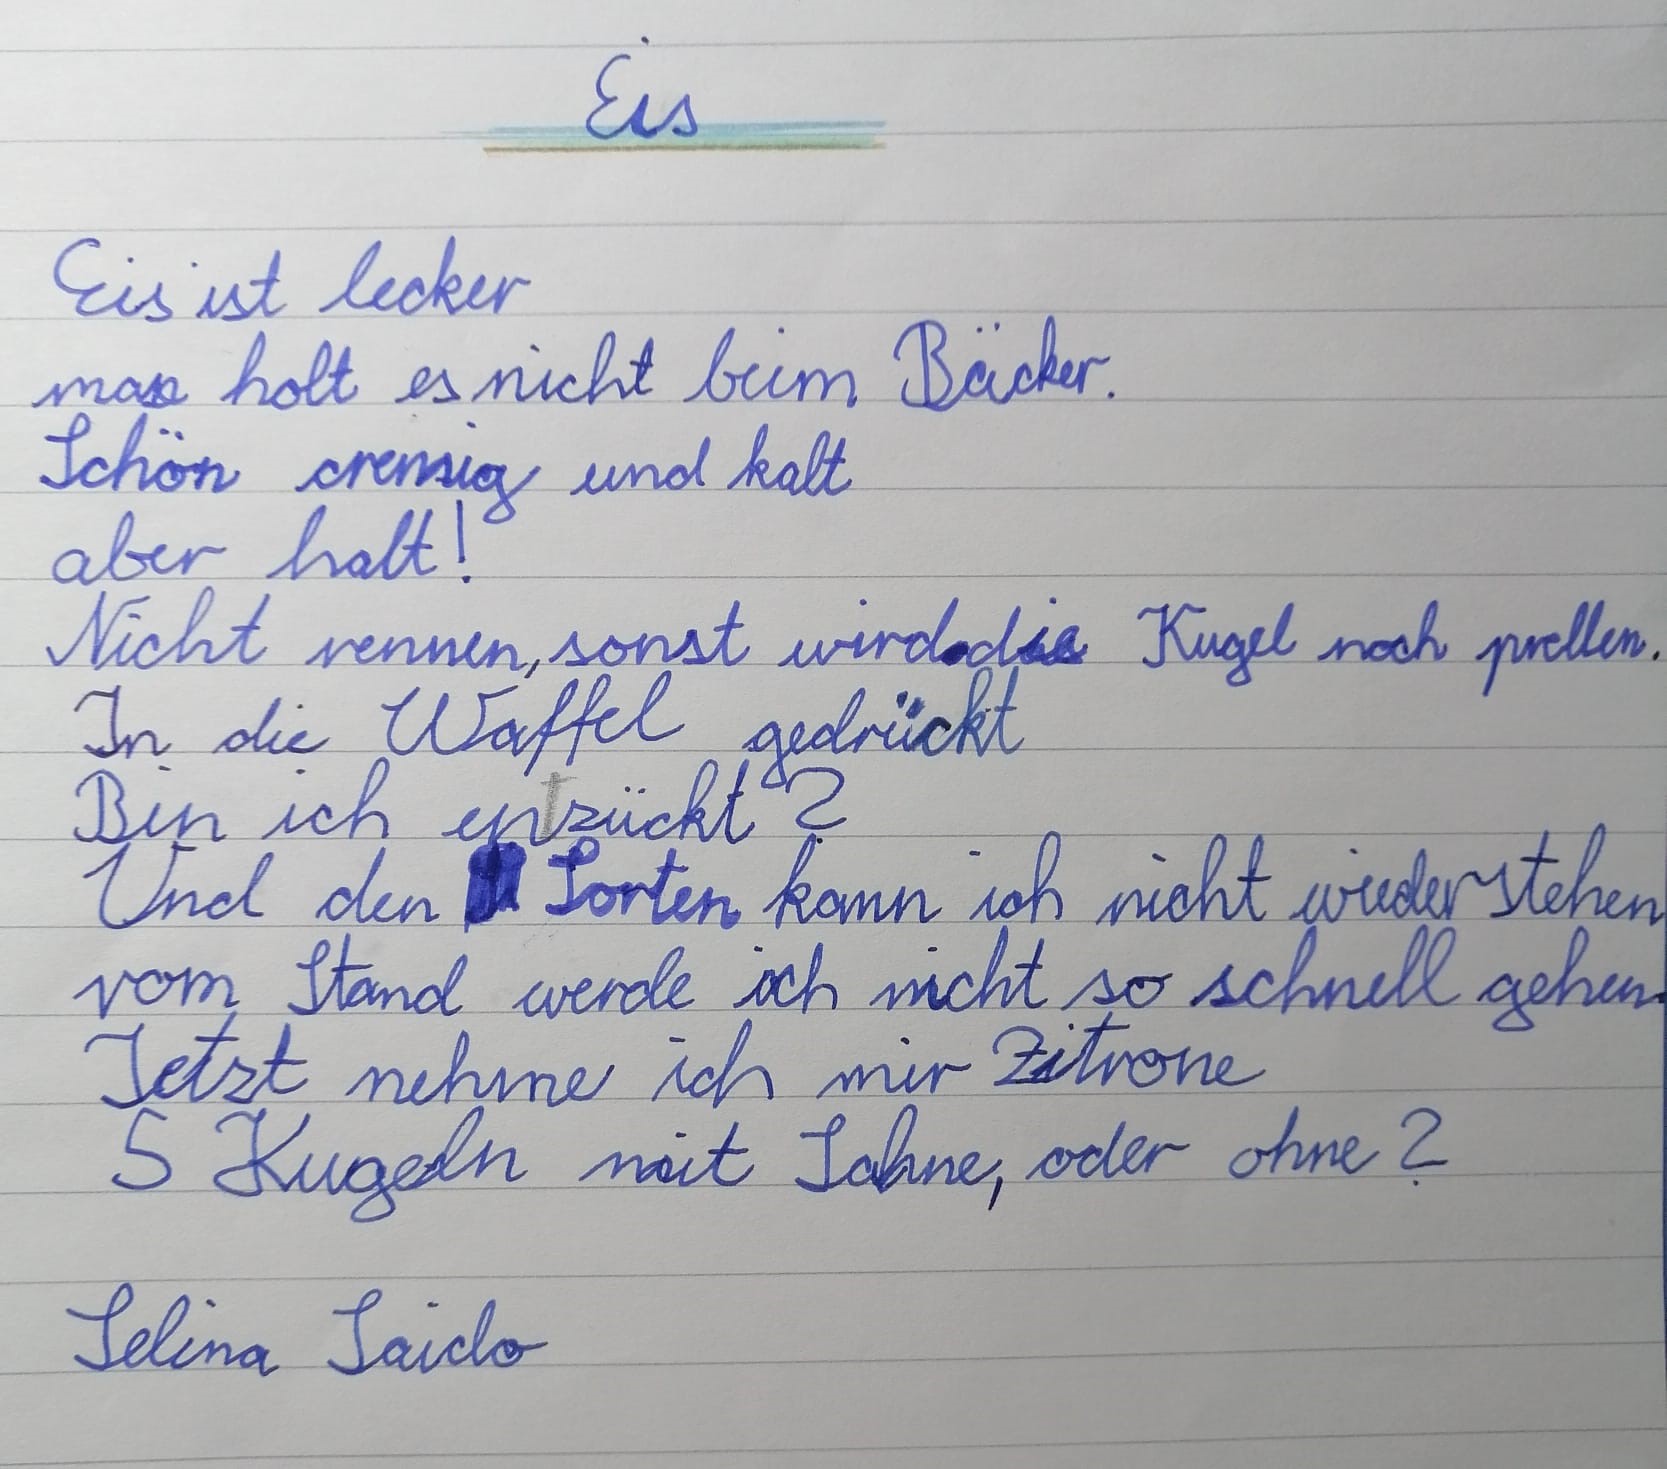 Eis
Eis ist lecker
man holt es nicht beim Bäcker.
Schön cremig und kalt
aber halt!
Nicht rennen, sonst wird die Kugel noch prellen.
In die Waffel gedrückt
Bin ich entzückt?
Und den Sorten kann ich nicht wiederstehen
vom Stand werde ich nicht so schnell gehen.
Jetzt nehme ich mir Zitrone
5 Kugeln mit Sahne, oder ohne?
Selina Saido